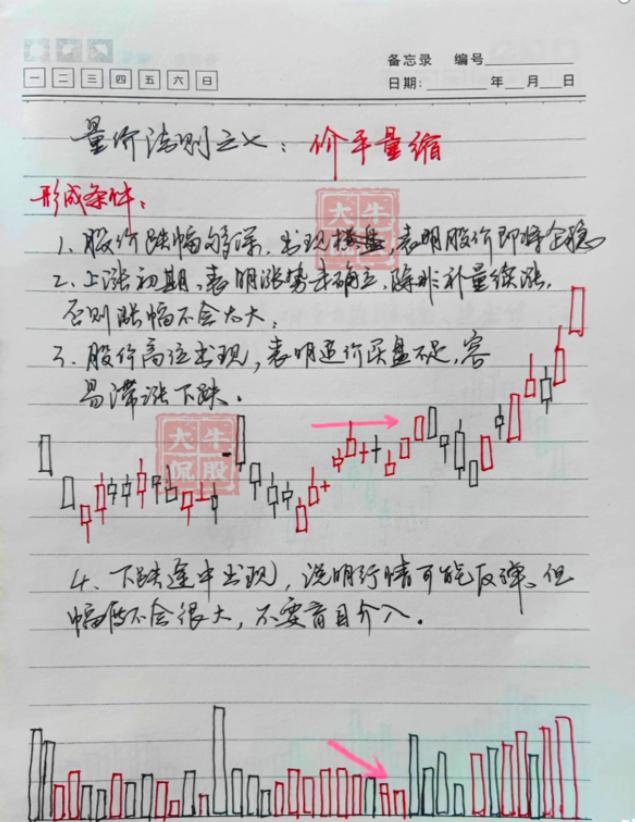 备忘录 编号
一 二 三 四 五 六 日
日期: 年 月 日
量价法则之七: 价平量缩
形成条件:
1、股价跌幅够深,出现横盘,表明股价即将企稳
2、上涨初期、表明涨势未确立,除非补量续涨,
否则涨幅不会太大;
3、股价高位出现,表明追价买盘不足,容
易滞涨下跌.
大牛
侃股
大牛
侃股
4、下跌途中出现,说明行情可能反弹、但
幅度不会很大,不要盲目介入.